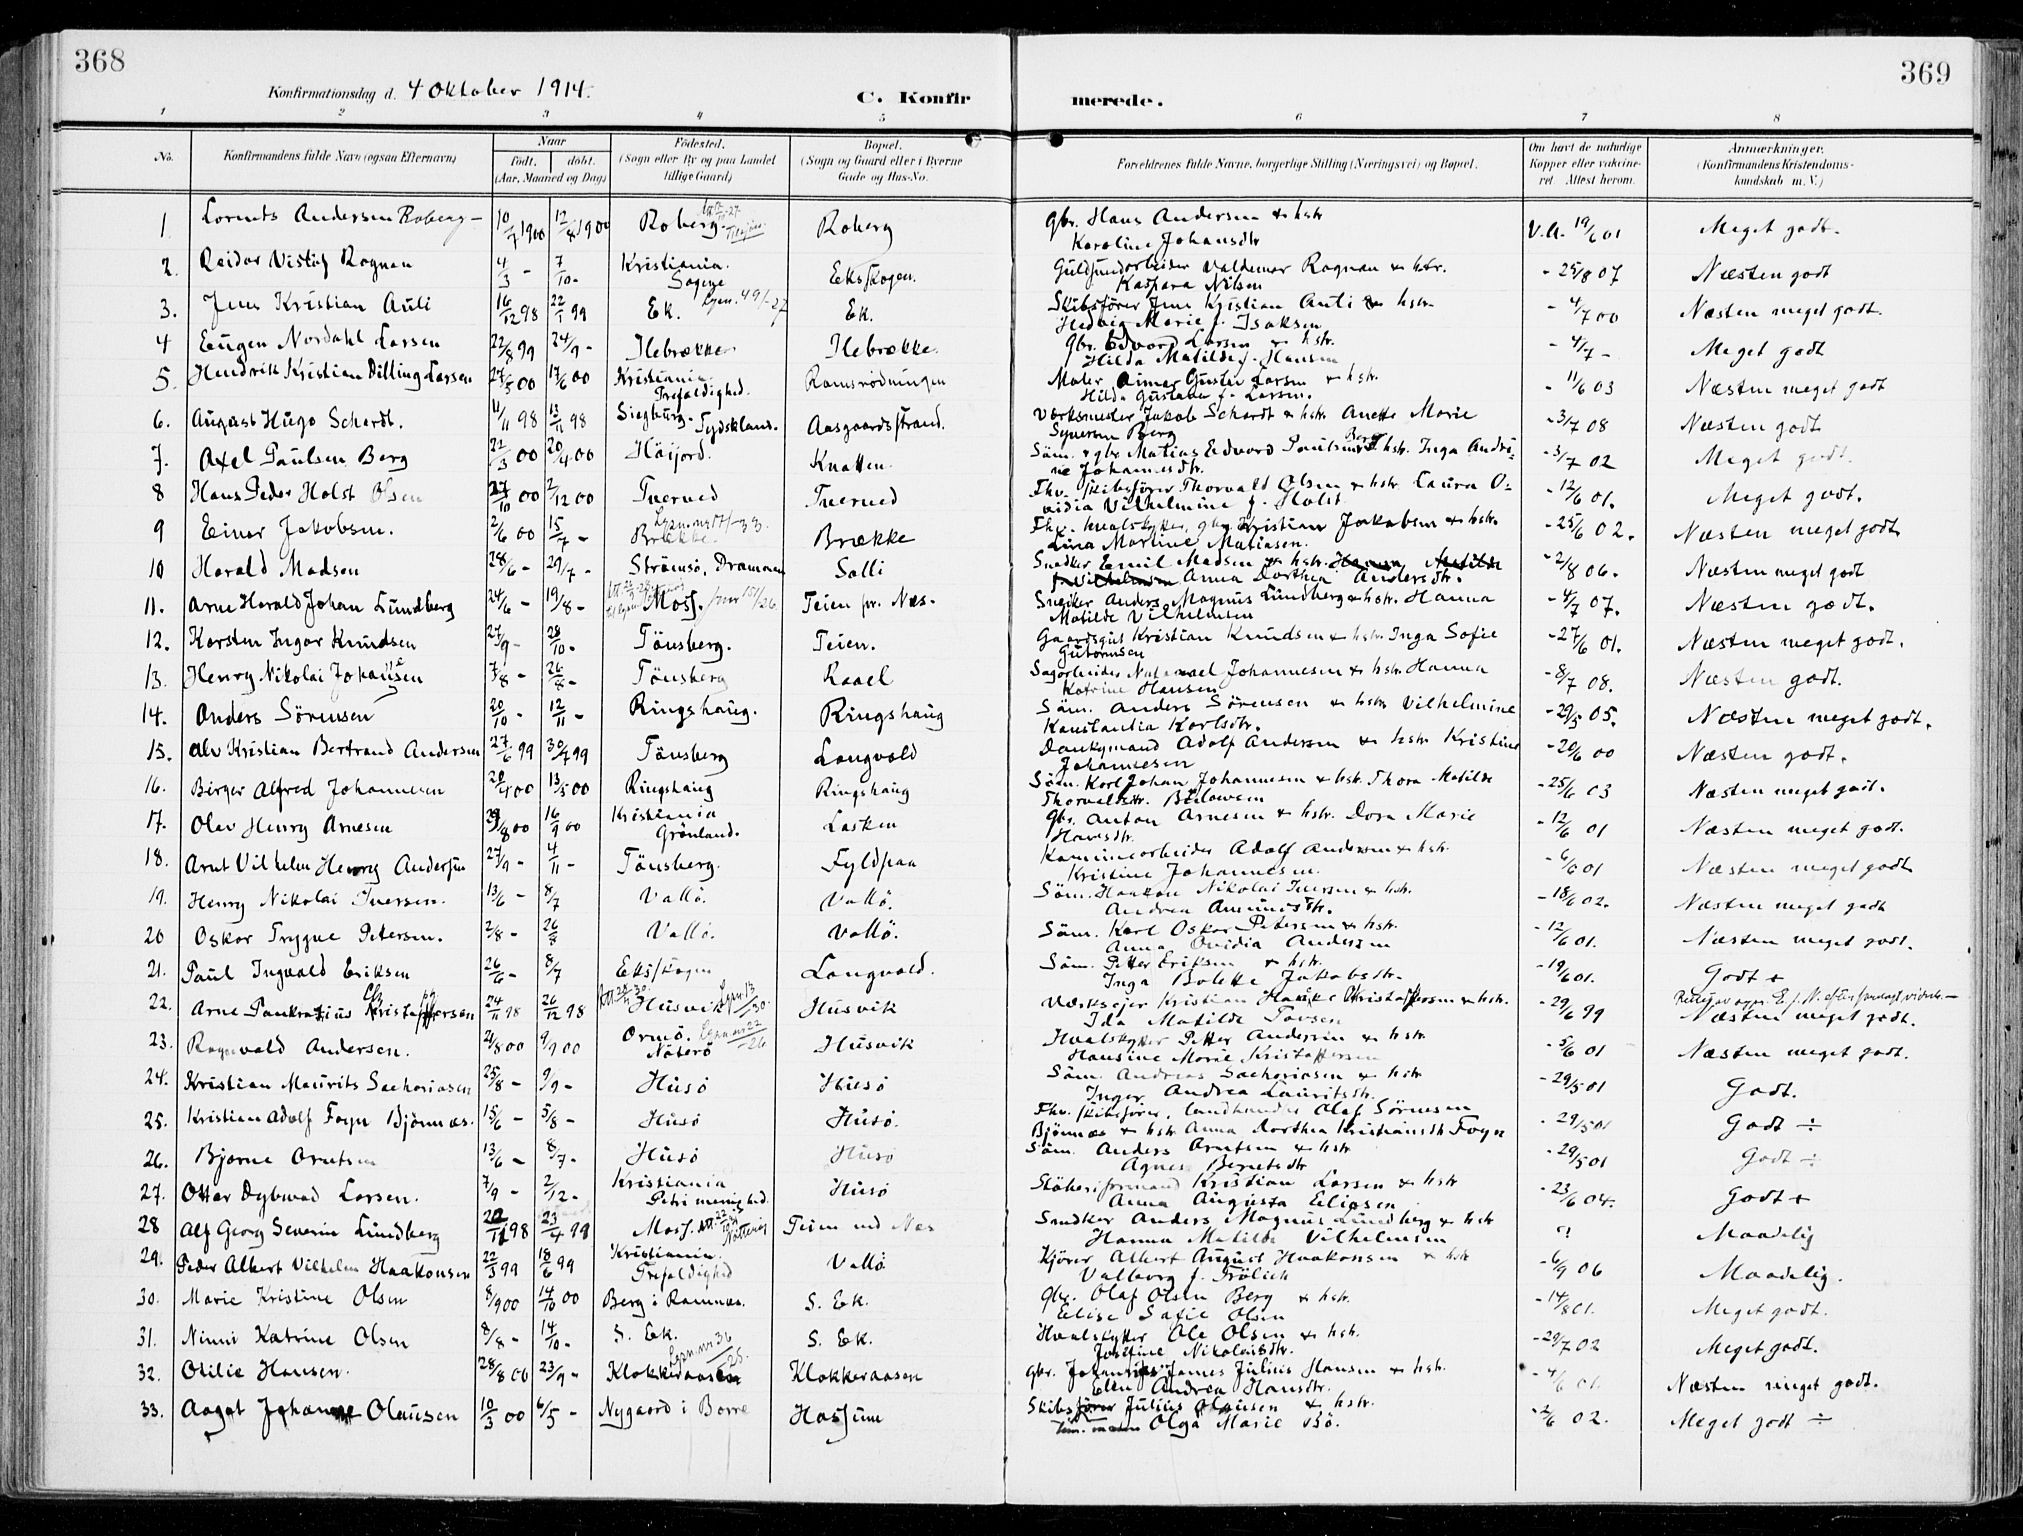 368
369
Konfirmationsdag d. 4 Oktober 1914.
C. Konfirmerede.
1 2 3 4 5 6 7 8
No. Konfirmandens fulde Navn (ogsaa Efternavn) Naar født. døbt. (Aar, Maaned og Dag) Fødested. (Sogn eller By og paa Landet tillige Gaard) Bopæl. (Sogn og Gaard eller i Byerne Gade og Hus-No. Forældrenes fulde Navne, borgerlige Stilling (Næringsvei) og Bopæl. Om havt de naturlige Kopper eller vakcineret. Attest herom. Anmærkninger. (Konfirmandens Kristendomskundskab m. V.)
1. Lorents Andersen Roberg 10/7 1900 12/8 1900 Roberg Roberg gbr. Hans Andersen & hstr Karoline Johansdtr V.A. 19/6 01 Meget godt.
2. Reidar Rognan 4/3 - 7/10 - Kristiania. Sagene Ekskogen. Valdemar Rognan & hstr. Kaspara Nilsen - 25/8 07 Næsten godt
3. Jens Kristian Auli 16/12 98 22/1 99 Ek. Ek. Skibsfører Jens Kristian Auli & hstr. Hedvig Marie f. Isaksen - 4/7 00 Næsten meget godt.
4 Eugen Nordahl Larsen 22/8 99 24/9 - Ilebrække Ilebrække. gbr. Edvard Larsen & hstr. Hilda Matilde f. Hansen - 4/7 - Meget godt
5. Hendrik Kristian Dilling Larsen 27/5 00 17/6 00 Kristiania Trefoldighed. Ramsrødningen Maler Einar Gustav Larsen & hstr. Hilda Gustava f. Larsen. - 11/6 03 Næsten meget godt
6. August Hugo Schardt. 4/11 98 13/11 98 Siegburg. Tydskland. Aasgaardsstrand. Værksmester Jakob Schardt & hstr. Anette Marie Syversen Berg - 3/7 08 Næsten godt
7. Axel Paulsen Berg 22/3 00 20/4 00 Høijord. Knatten. Søm. & gbr. Matias Edvard Paulsen Berg & hstr. Inga Andrine Johannesdtr. - 3/7 02 Meget godt.
8 Hans Peder Holst Olsen 27/10 00 2/12 00 Tverved Tverved Fhv. Skibsfører Thorvald Olsen & hstr. Laura Ovidia Vilhelmine f. Holst - 12/6 01. Meget godt.
9 Einar Jakobsen. 2/6 00 15/7 - Brække. Brække Fhv. hvalskytter, gbr. Kristian Jakobsen & hstr. Lina Martine Matiasen. - 25/6 02. Næsten meget godt
10 Harald Madsen 28/6 - 29/7 - Strømsø, Drammen Solli Snedker Emil Madsen & hstr. Hanna Matilde f. Vilhelmsen Anna Dorthea Andersdtr. - 2/8 06. Næsten meget godt
11. Arne Harald Johan Lundberg 24/6 - 19/8 - Moss. Teien pr. Næs. Snedker Anders Magnus Lundberg & hstr. Hanna Matilde Vilhelmsen - 4/7 07. Næsten godt.
12. Karsten Ingar Knudsen 27/9 - 28/10 - Tönsberg. Teien. Gaardsgut Kristian Knudsen & hstr. Inga Sofie Gutormsen - 27/6 01. Næsten meget godt.
13. Henry Nikolai Johansen 7/8 - 26/8 - Tönsberg Raael Sagarbeider Johannesen & hstr. Hanna Katrine Hansen - 8/7 08. Næsten godt.
14. Anders Sörensen 20/10 - 12/11 - Ringshaug. Ringshaug Søm. Anders Sörensen & hstr. Vilhelmine Konstantia Karlsdtr. - 29/5 05. Næsten meget godt.
15. Alv Kristian Bertrand Andersen 27/6 99 30/7 99 Tönsberg Langvold Donkymand Adolf Andersen & hstr Kristine Johannesen - 20/6 00 Næsten godt.
16. Birger Alfred Johannesen 20/4 00 13/5 00 Ringshaug Ringshaug Søm. Karl Johan Johannesen & hstr. Thora Matilde Thorvaldsdtr. - 25/6 03 Næsten meget godt.
17. Olav Henry Arnesen 29/8 00 16/9 00 Kristiania Grønland. Lasken gbr. Anton Arnesen & hstr. Dora Marie Hansdtr. - 12/6 01 Næsten meget godt.
18. Arnt Vilhelm Henry Andersen 27/9 - 4/11 - Tönsberg. Fyldpaa Adolf Andersen & hstr. Kristine Johannesen. - 6/6 01 Næsten meget godt
19. Henry Nikolai Iversen. 13/6 - 8/7 Vallö. Vallö. Søm. Haakon Nikolai Iversen & hstr. Andrea Amundsdtr. - 18/6 02. Næsten meget godt
20 Oskar Trygve Petersen. 2/8 - 26/8 Vallö. Vallö. Søm. Karl Oskar Petersen & hstr. Anna Ovidia Andersen - 12/6 01. Næsten meget godt.
21. Paul Ingvald Eriksen 26/6 - 8/7 Ekskogen Langvold. Søm. Petter Eriksen & hstr. Inga Bolette Jakobsdtr. - 19/6 01. Godt +
22. Arne Pankratius Kristoffersen 24/11 98 26/12 98 Husvik Husvik Værkseier Kristian Kristoffersen & hstr. Ida Matilde Torsen - 29/6 99 Næsten meget godt.
23. Ragnvald Andersen. 21/8 00 9/9 00 Ormö. Nöterö Husvik Hvalskytter Petter Andersen & hstr Hansine Marie Kristoffersen - 5/6 01 Næsten meget godt.
24. Kristian Maurits Sachariasen 25/8 - 9/9 - Husö Husö Søm. Andreas Sachariasen & hstr Inger Andrea Lauritsdtr. - 29/5 01 Godt.
25. Kristian Adolf Foyn Bjönnæs. 15/6 - 5/8 - Husö Husö. Fhv. skibsfører, landhandler Olaf Sörensen Bjönnæs & hstr Anna Dorthea Kristiansdtr Foyn - 29/5 01 Godt ÷
26. Bjarne Arntsen 13/6 - 8/7 - Husö Husö Søm. Anders Arntsen & hstr. Agnes Berntsdtr - 29/5 01 Godt ÷
27. Ottar Dybwad Larsen. 7/9 - 2/12 - Kristiania Petri menighed. Husö Støberiformand Kristian Larsen & hstr Anna Augusta Eliasen - 23/6 04. Godt +
28 Alf Georg Severin Lundberg 20/12 98 23/4 99 Moss. Teien ved Næs Snedker Anders Magnus Lundberg & hstr Hanna Matilde Vilhelmsen ? Maadelig
29. Peder Albert Vilhelm Haakonsen 22/3 99 18/6 99 Kristiania. Trefoldighed Vallö Kjører Albert August Haakonsen & hstr Valborg f. Frölich - 6/9 06 Maadelig.
30. Marie Kristine Olsen 8/9 00 14/10 00 Berg i Ramnæs. S. Ek. gbr. Olaf Olsen Berg & hstr. Elise Sofie Olsen - 14/8 01. Meget godt.
31. Ninni Katrine Olsen 8/8 - 14/10 - S. Ek. S. Ek. Hvalskytter Ole Olsen & hstr. Josefine Nikolaisdtr. - 29/7 02 Meget godt.
32. Otilie Hansen. 28/8 00 23/9 - Klokkeraasen Klokkeraasen gbr. Johannes James Julius Hansen & hstr. Ellen Andrea Hansdtr. - 4/6 01. Næsten meget godt.
33. Aagot Johanne Olausen 10/3 00 6/5 - Nygaard i Borre Hassum Skibsfører Julius Olausen & hstr. Olga Marie Bö. - 2/6 02. Meget godt ÷